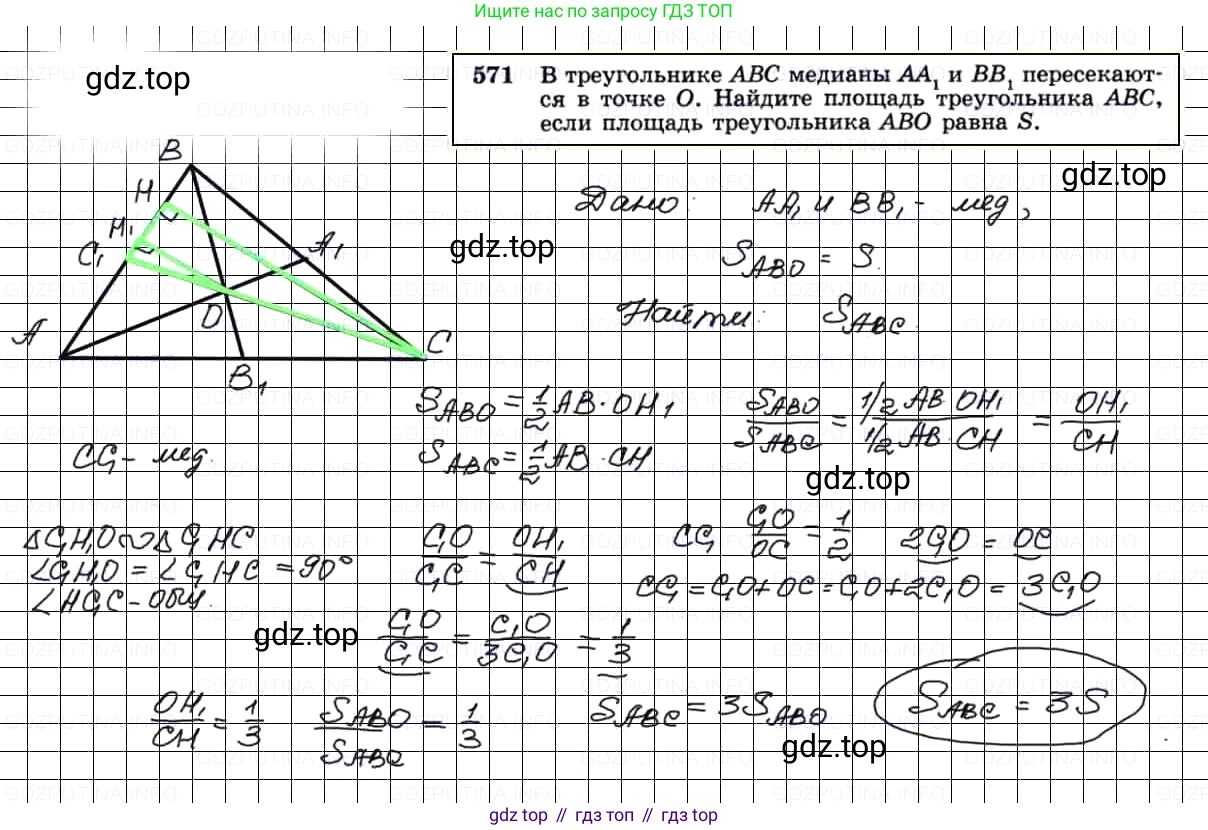 Ищите нас по запросу ГДЗ ТОП
gdz.top
571 В треугольнике ABC медианы AA₁ и BB₁ пересекают-
ся в точке O. Найдите площадь треугольника ABC,
если площадь треугольника ABO равна S.
B
H
H₁
C₁
A₁
O
A
C
B₁
Дано: AA₁ и BB₁ - мед,
gdz.top
gdz.top
S_ABO = S.
Найти: S_ABC.
S_ABO = 1/2 AB · OH₁
S_ABO/S_ABC = (1/2 AB OH₁)/(1/2 AB · CH) = OH₁/CH
CC₁ - мед.
S_ABC = 1/2 AB · CH
gdz.top
△C₁H₁O ∾ △C₁HC
∠C₁H₁O = ∠C₁HC = 90°
∠HC₁C - общ.
C₁O/C₁C = OH₁/CH
CC₁ C₁O/OC = 1/2 2C₁O = OC
CC₁ = C₁O + OC = C₁O + 2C₁O = 3C₁O
gdz.top
C₁O/C₁C = C₁O/3C₁O = 1/3
OH₁/CH = 1/3 S_ABO/S_ABC = 1/3 S_ABC = 3S_ABO S_ABC = 3S
gdz.top
gdz.top // гдз топ // gdz.top